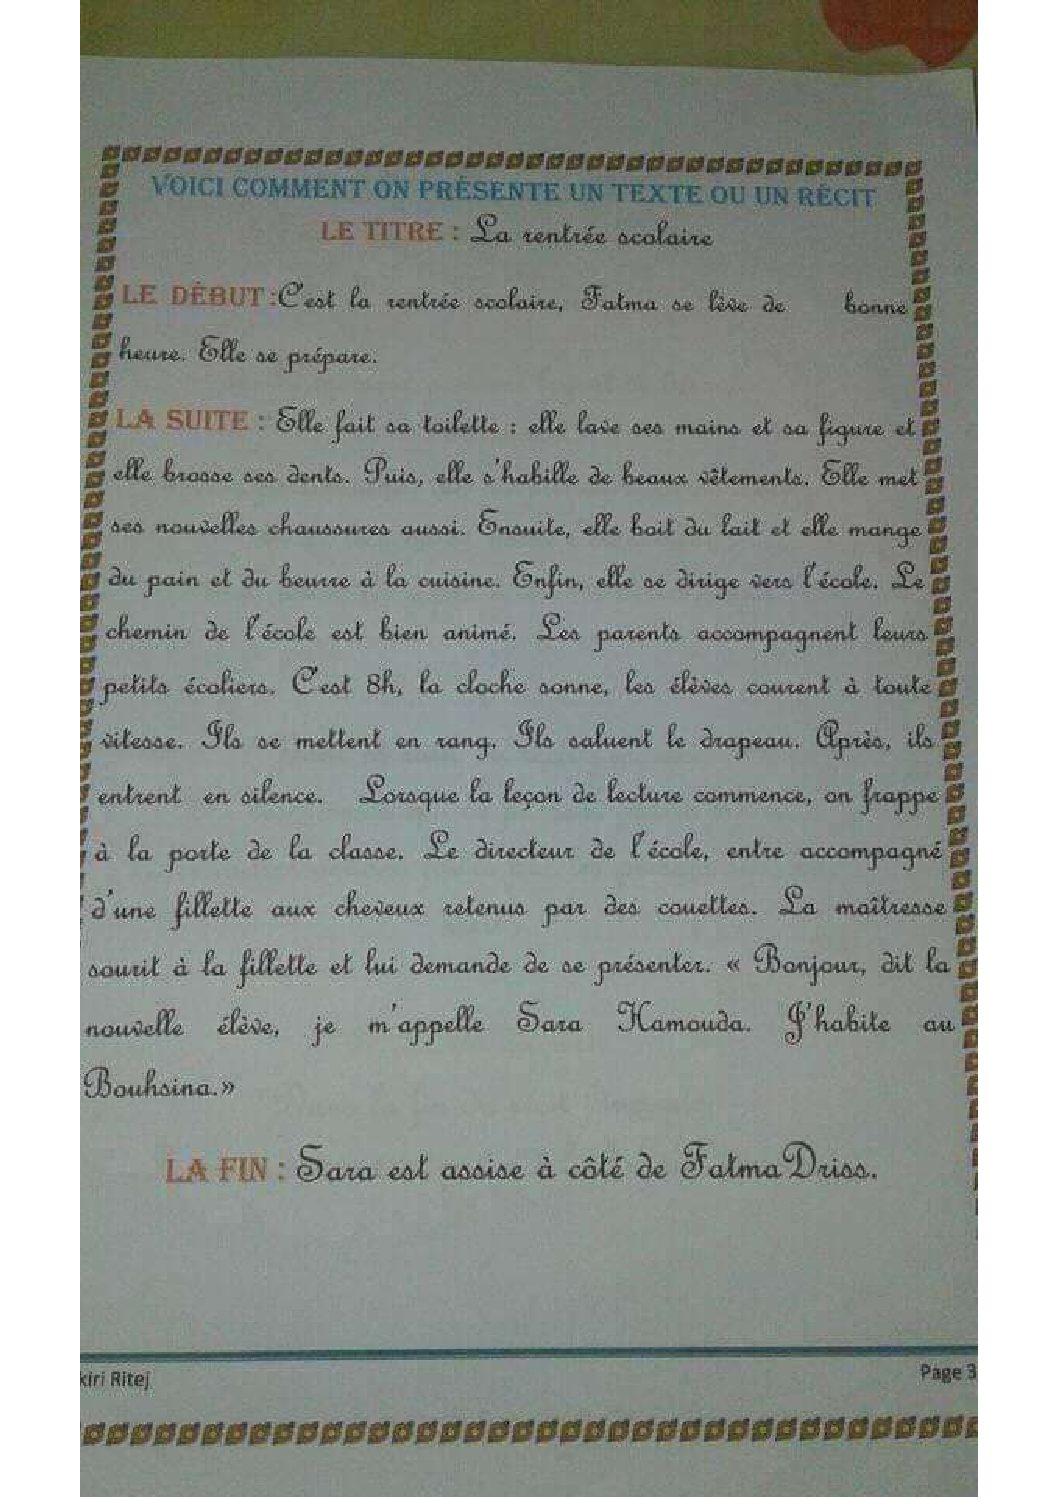 VOICI COMMENT ON PRÉSENTE UN TEXTE OU UN RÉCIT
LE TITRE : La rentrée scolaire
LE DÉBUT :C'est la rentrée scolaire, Fatma se lève de bonne
heure. Elle se prépare.
LA SUITE : Elle fait sa toilette : elle lave ses mains et sa figure et
elle brosse ses dents. Puis, elle s'habille de beaux vêtements. Elle met
ses nouvelles chaussures aussi. Ensuite, elle boit du lait et elle mange
du pain et du beurre à la cuisine. Enfin, elle se dirige vers l'école. Le
chemin de l'école est bien animé. Les parents accompagnent leurs
petits écoliers. C'est 8h, la cloche sonne, les élèves courent à toute
vitesse. Ils se mettent en rang. Ils saluent le drapeau. Après, ils
entrent en silence. Lorsque la leçon de lecture commence, on frappe
à la porte de la classe. Le directeur de l'école, entre accompagné
d'une fillette aux cheveux retenus par des couettes. La maîtresse
sourit à la fillette et lui demande de se présenter. « Bonjour, dit la
nouvelle élève, je m'appelle Sara Hamouda. J'habite au
Bouhsina.»
LA FIN : Sara est assise à côté de Fatma Driss.
kiri Ritej
Page 3